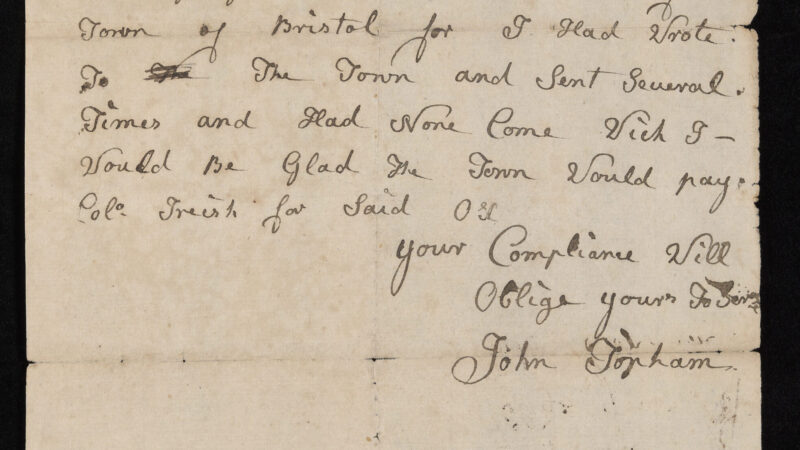 Town of Bristol for I Had Vrote.
To The The Town and Sent Several.
Times and Had None Come Vich I –
Vould Be Glad The Town Vould pay.
Colo. Treish for Said Ox
your Compliance Vill
Oblige yours To Serve
John Topham